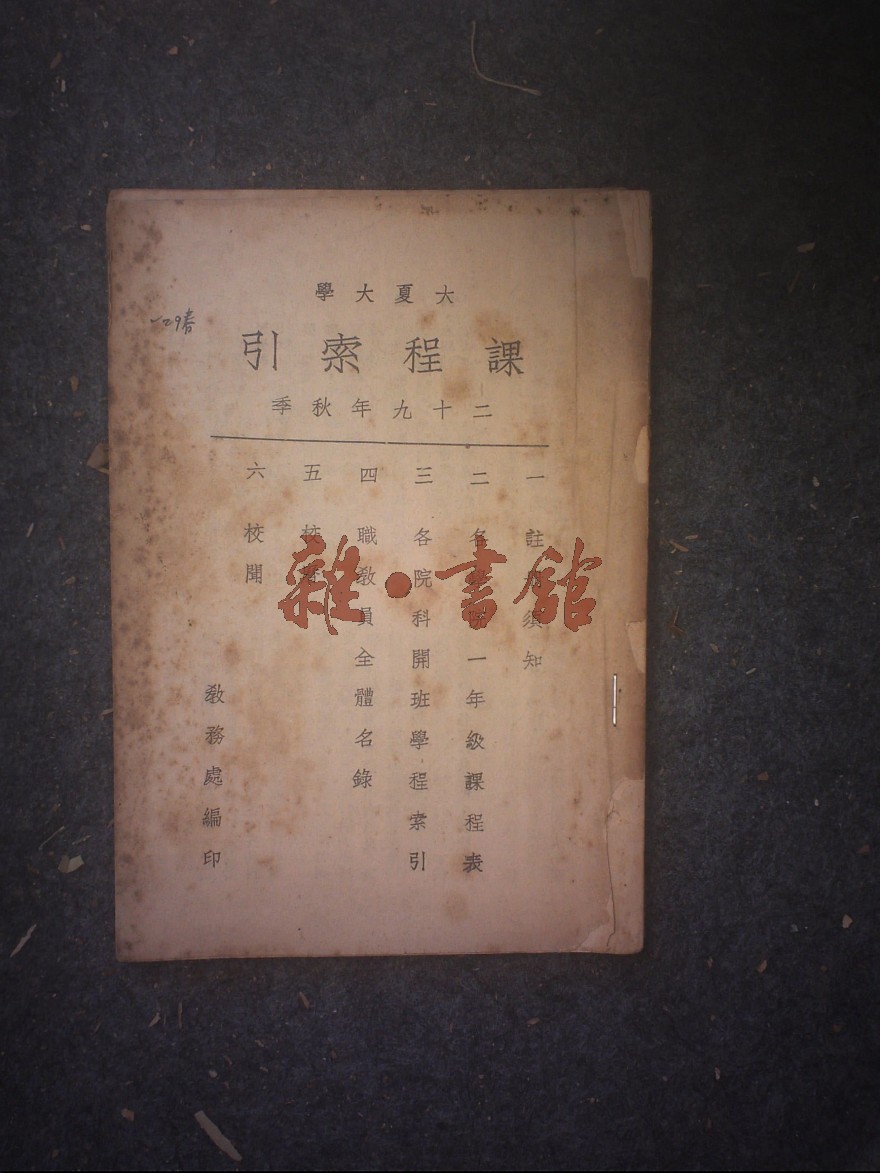 大夏大學
課程索引
二十九年秋季
一 註須知
二 一年級課程表
三 各院科開班學程索引
四 職教員全體名錄
五 校
六 校聞
教務處編印
雜·書館